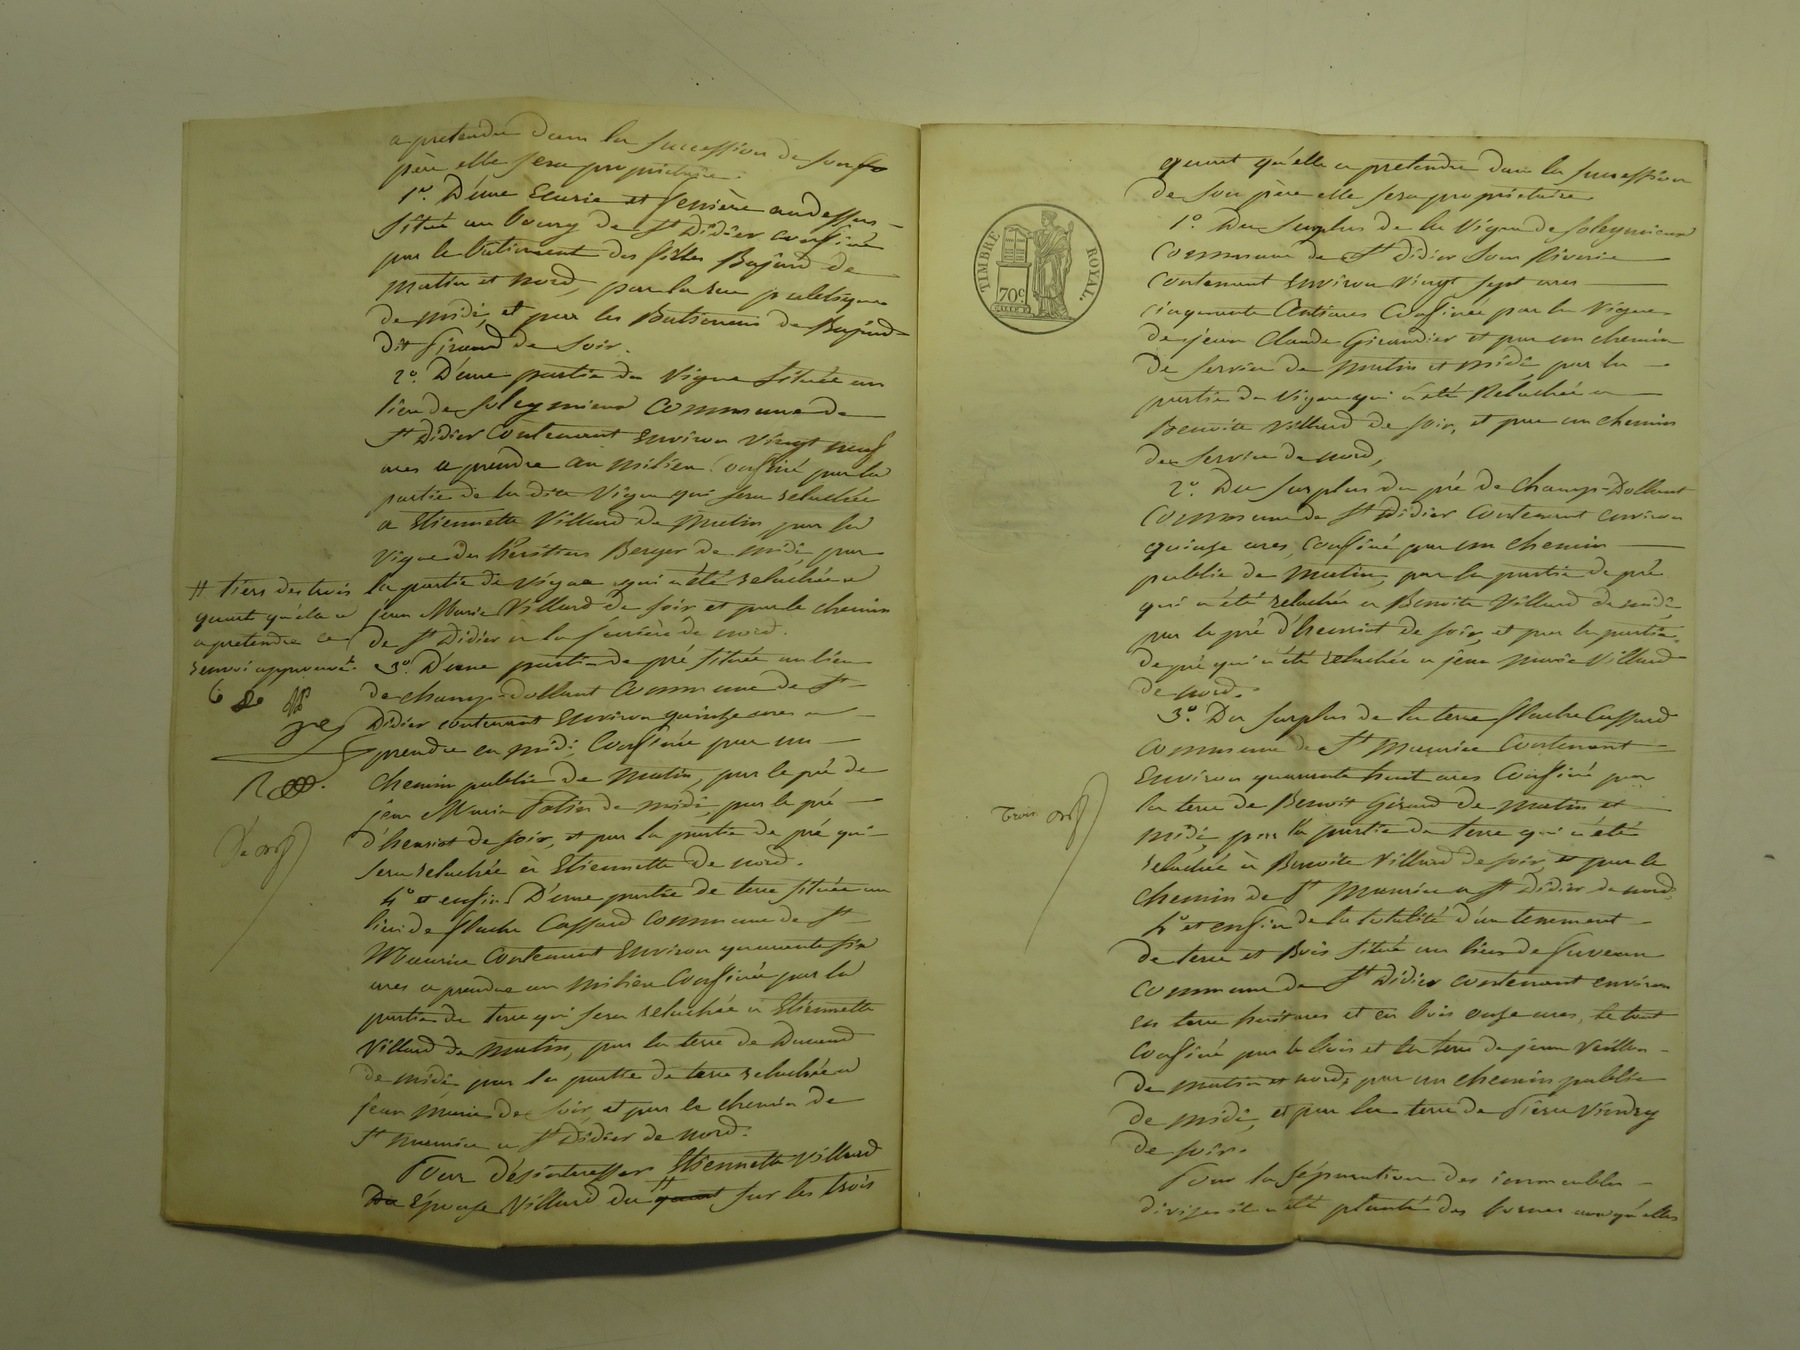 a pretendre dans la succession de son
père elle sera propriétaire.
1º. D'une Ecurie et feniére audessus
située au bourg de St Didier confiné
par le batiment des filles Bajard de
matin et nord, par la rue publique
de midi, et par les Batiments de Bajard
dit Giraud de soir.
2º. D'une partie de Vigne située au
lieu de Soleymieux Commune de
St Didier Contenant Environ Vingt neuf
ares a prendre au milieu Confiné par la
partie de la dite Vigne qui sera relachée
a Etiennette Villard de Matin par la
Vigne des héritiers Berger de midi, par
la partie de Vigne qui a été relachée a
jean Marie Villard de soir et par le chemin
de St Didier a la de nord.
3º. D'une partie de pré située au lieu
de champ-Dollant Commune de St
Didier contenant Environ quinze ares a
prendre en midi, Confinée par un
chemin public de matin, par le pré de
jean Marie de midi, par le pré
d'henriot de soir, et par la partie de pré qui
sera relachée à Etiennette de nord.
4º et enfin D'une partie de terre située au
lieu de flache Caffard commune de St
Maurice Contenant Environ quarante six
ares a prendre au milieu Confinée par la
partie de terre qui sera relachée a Etiennette
Villard de matin, par la terre de Durand
de midi par la partie de terre relachée a
jean Marie de soir, et par le chemin de
St Maurice a St Didier de nord.
Pour Désinteresser Etiennette Villard
Du Epouse Villard du # quart sur les trois
# tiers des trois
quart qu'elle a
a pretendre ce
renvoi approuvé
quart qu'elle a pretendre dans la succession
de son père elle sera propriétaire
TIMBRE ROYAL.
70c
1º. Du Surplus de la Vigne de Soleymieux
Commune de St Didier Sous Riverie
Contenant Environ Vingt sept ares
cinquante Centiares Confinée par la Vigne
de jean Claude Giraudier et par un chemin
de service de Matin et midi, par la
partie de Vigne qui a été Relachée a
Benoite Villard de soir, et par un chemin
de service de nord,
2º. Du Surplus du pré de champ-Dollant
Commune de St Didier Contenant environ
quinze ares, Confiné par un chemin
public de Matin, par la partie de pré
qui a été relachée a Benoite Villard de midi,
par le pré d'henriot de soir, et par la partie
de pré qui a été relachée a jean Marie Villard
de nord.
3º. Du Surplus de la terre flache Caffard
Commune de St Maurice Contenant
Environ quarante huit ares Confiné par
la terre de Benoit Gérard de matin et
midi, par la partie de terre qui a été
relachée a Benoite Villard de soir, et par le
chemin de St Maurice a St Didier de nord,
Trois
4º et enfin de la totalité d'un tenement
de terre et Bois situé au lieu de
Commune de St Didier contenant environ
en terre huit ares et en bois onze ares, le tout
Confiné par le bois et la terre de jean
de matin et nord, par un chemin public
de midi, et par la terre de Pierre Vindry
de soir.
Pour la séparation des immeubles
divisés il a été planté des bornes auxquelles